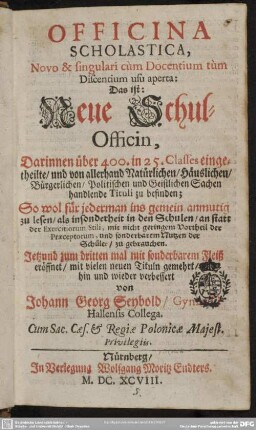 OFFICINA
SCHOLASTICA,
Novo & singulari cùm Docentium tùm
Discentium usu aperta:
Das ist:
Neue Schul-
Officin,
Darinnen über 400. in 25. Classes einge-
theilte/ und von allerhand Natürlichen/ Häuslichen/
Bürgerlichen/ Politischen und Geistlichen Sachen
handlende Tituli zu befinden;
So wol für jederman ins gemein anmutig
zu lesen/ als insonderheit in den Schulen/ an statt
der Exercitiorum Stili, mit nicht geringem Vortheil der
Præceptorum, und sonderbarem Nutzen der
Schüler/ zu gebrauchen.
Jetzund zum dritten mal mit sonderbarem Fleiß
eröffnet/ mit vielen neuen Tituln gemehrt/
hin und wieder verbessert
von
Johann Georg Seybold/ Gymn.
Hallensis Collega.
Cum Sac. Cæs. & Regiæ Polonicæ Majest.
Privilegiis.
Nürnberg/
In Verlegung Wolfgang Moritz Endters.
M. DC. XCVIII.